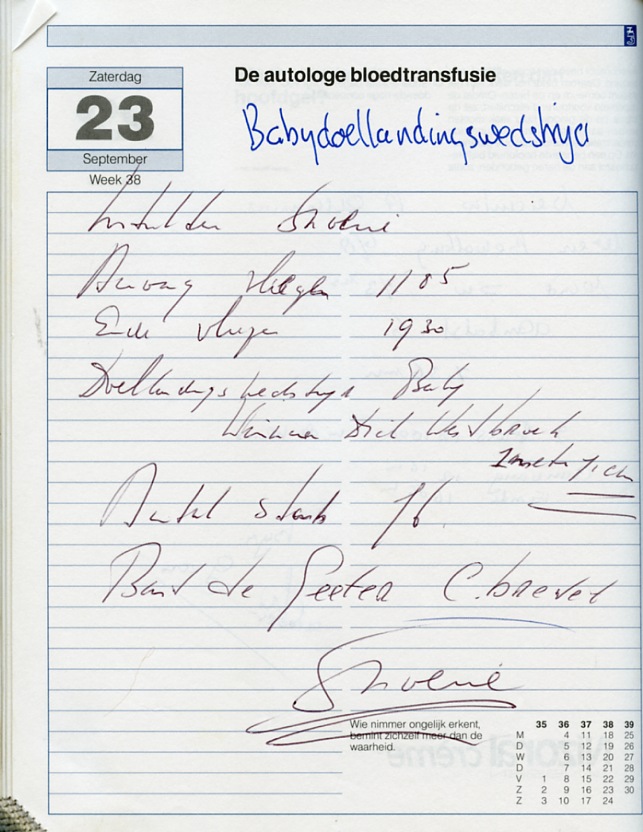 Zaterdag
23
September
Week 38
De autologe bloedtransfusie
Babydoellandingswedstrijd
Aanvang vliegen 1105
Einde vliegen 1930
Doellandingswedstrijd Baby
Winnaar Dick Westbroek
1 meter
Aantal starts
Bart de Geeter C. brevet
Wie nimmer ongelijk erkent,
bemint zichzelf meer dan de
waarheid.
35 36 37 38 39
M 4 11 18 25
D 5 12 19 26
W 6 13 20 27
D 7 14 21 28
V 1 8 15 22 29
Z 2 9 16 23 30
Z 3 10 17 24